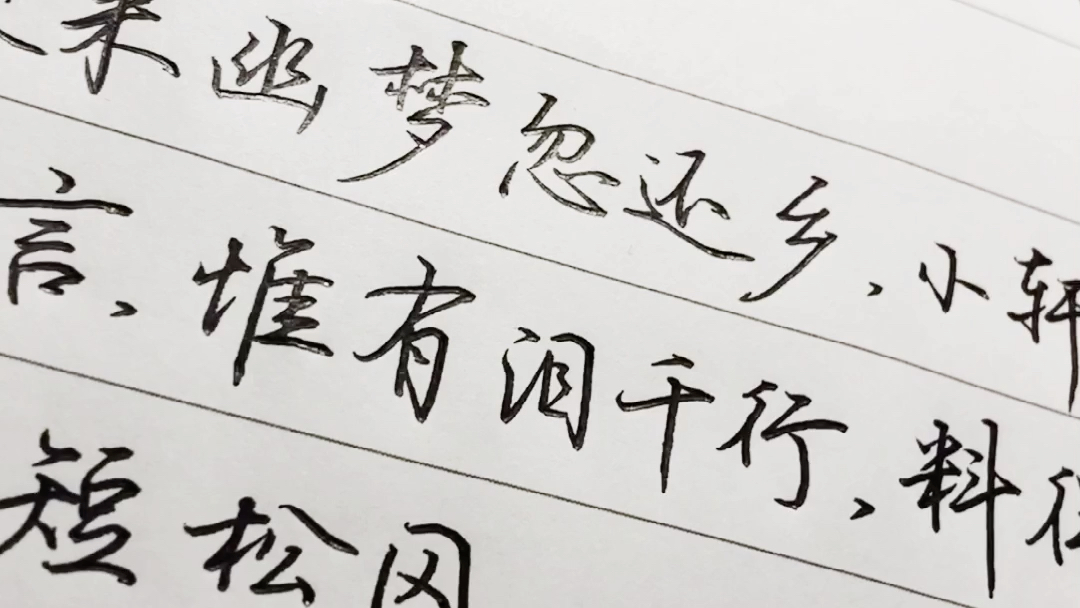 来幽梦忽还乡、小轩
言、惟有泪千行、料得
短松冈